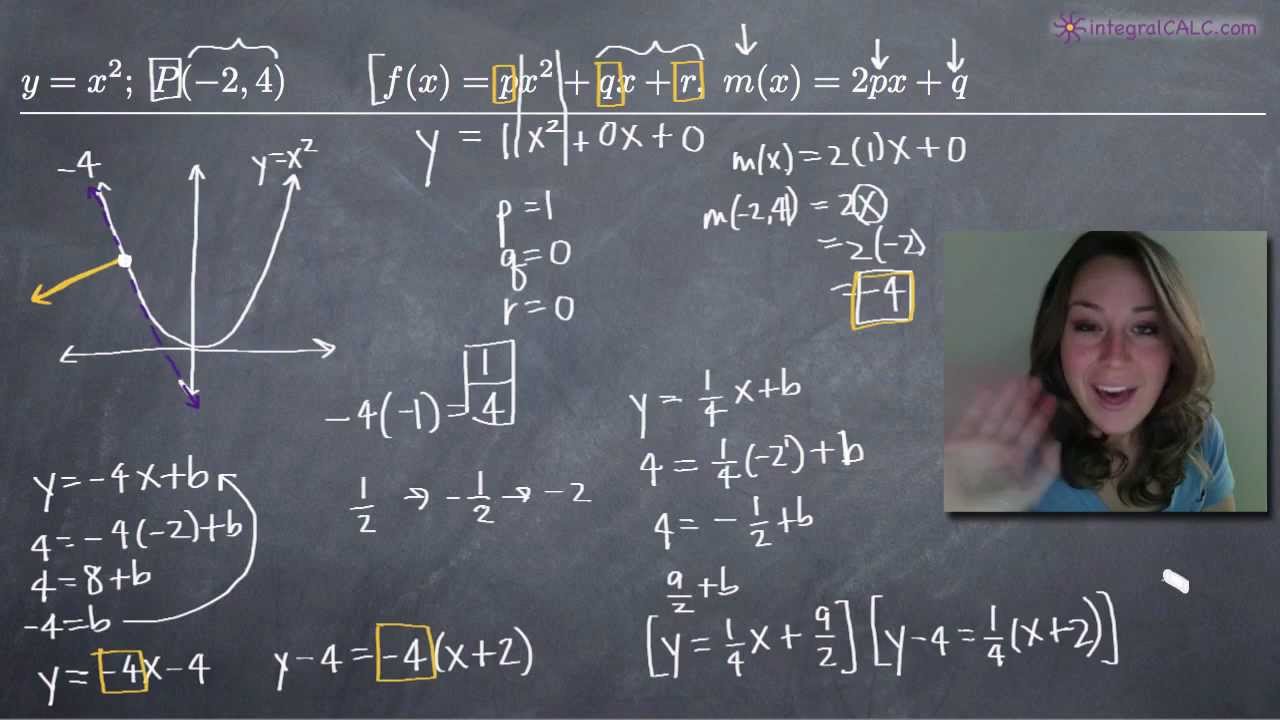 integralCALC.com
y = x²; P(−2, 4) [f(x) = px² + qx + r. m(x) = 2px + q
y = 1x² + 0x + 0
m(x) = 2(1)x + 0
m(-2,4) = 2x
= 2(-2)
= -4
p = 1
q = 0
r = 0
-4
y=x²
-4(-1) = 1/4
1/2 → -1/2 → -2
y = -4x+b
4 = -4(-2)+b
4 = 8+b
-4 = b
y = -4x-4
y-4 = -4(x+2)
y = 1/4 x+b
4 = 1/4(-2)+b
4 = -1/2+b
9/2 +b
[y = 1/4 x + 9/2] [y-4 = 1/4(x+2)]